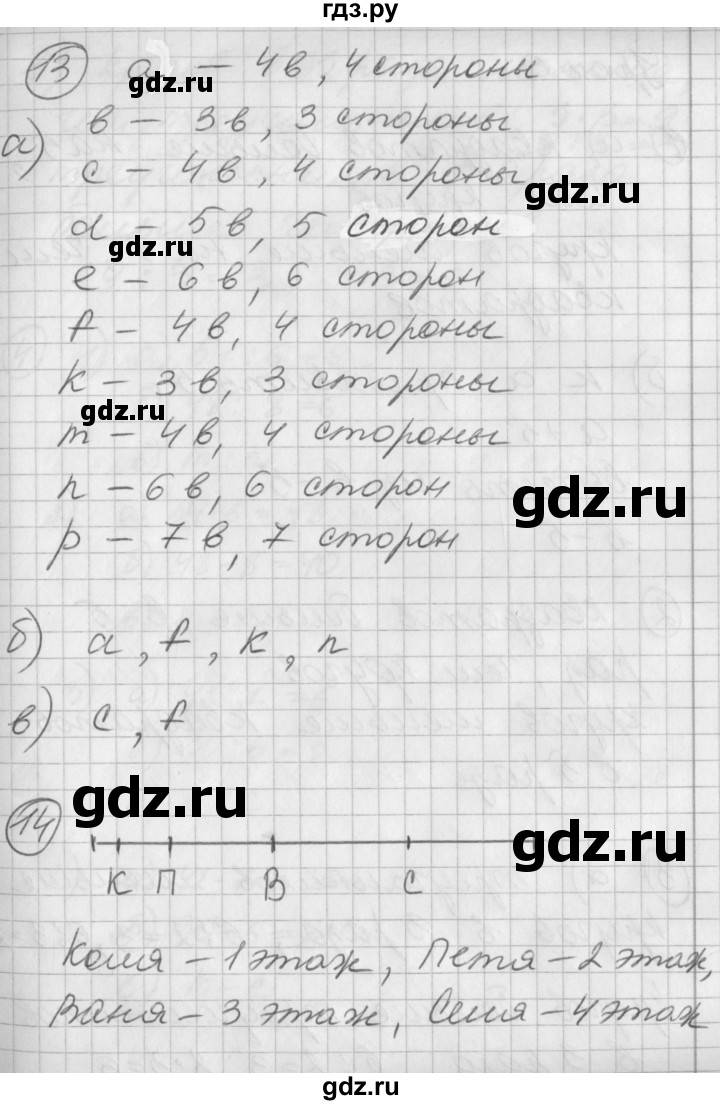 гдз.ру
13 a – 4в, 4 стороны
gdz.ru
а) в – 3в, 3 стороны
c – 4в, 4 стороны
gdz.ru
d – 5в, 5 сторон
gdz.ru
e – 6в, 6 сторон
f – 4в, 4 стороны
k – 3в, 3 стороны
gdz.ru
m – 4в, 4 стороны
n – 6в, 6 сторон
gdz.ru
p – 7в, 7 сторон
б) a, f, k, n
в) c, f
gdz.ru
14
gdz.ru
К П В С
Коля – 1 этаж, Петя – 2 этаж,
Ваня – 3 этаж, Сеня – 4 этаж
gdz.ru